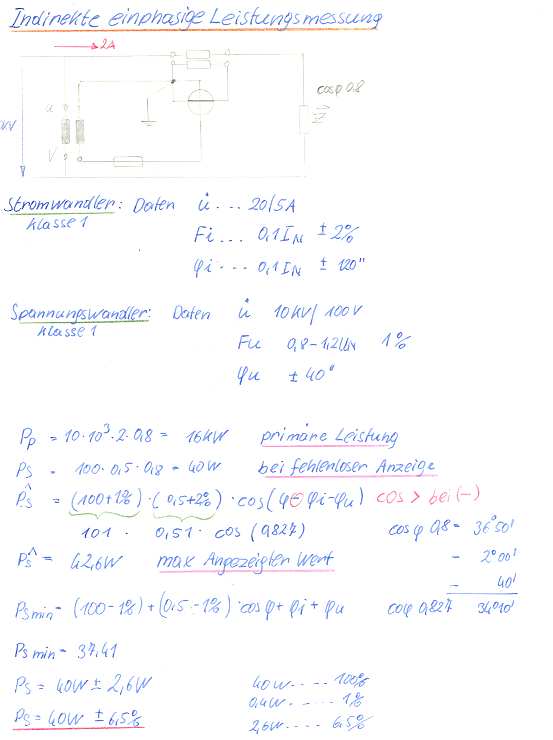 Indirekte einphasige Leistungsmessung
2A
cosφ 0.8
u
V
Z
Stromwandler: Daten ü ... 20/5A
Klasse 1
Fi ... 0,1 IN ± 2%
φi ... 0,1 IN ± 120"
Spannungswandler: Daten ü 10KV/100V
Klasse 1
Fu 0,8-1,2UN 1%
φu ± 40"
Pp = 10·10³·2·0.8 = 16KW primäre Leistung
Ps = 100·0,5·0,8 = 40W bei fehlenloser Anzeige
P̂s = (100+1%)·(0,5+2%)·cos(φ-φi-φu) cos > bei (-)
101 · 0,51 · cos (0,827) cosφ 0,8 = 36°50'
Ps^ = 42,6W max Angezeigten Wert - 2°00'
- 40'
Ps min = (100-1%)+(0,5-1%)·cosφ+φi+φu cosφ 0,827 34°10'
Ps min = 37,41
Ps = 40W ± 2,6W 40W .... 100%
0,4W .... 1%
Ps = 40W ± 6,5% 2,6W .... 6,5%